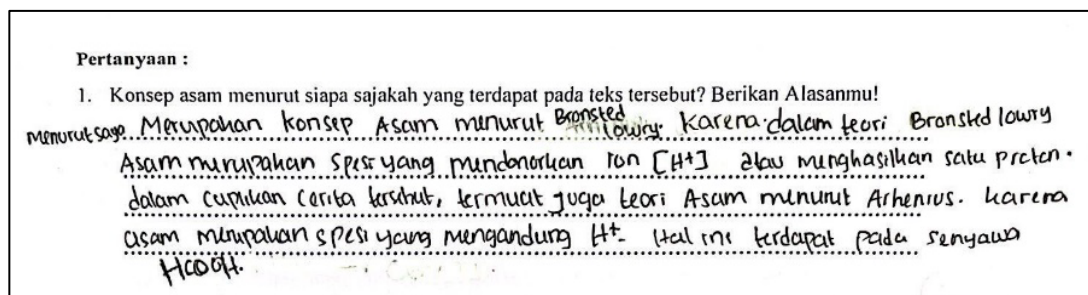 Pertanyaan :
1. Konsep asam menurut siapa sajakah yang terdapat pada teks tersebut? Berikan Alasanmu!
menurut saya Merupakan konsep Asam menurut Bronsted lowry. Karena dalam teori Bronsted lowry
Asam merupakan spesi yang mendonorkan ion [H+] atau menghasilkan satu proton.
dalam cuplikan cerita tersebut, termuat juga teori Asam menurut Arhenius. karena
asam merupakan spesi yang mengandung H+. Hal ini terdapat pada senyawa
HCOOH.